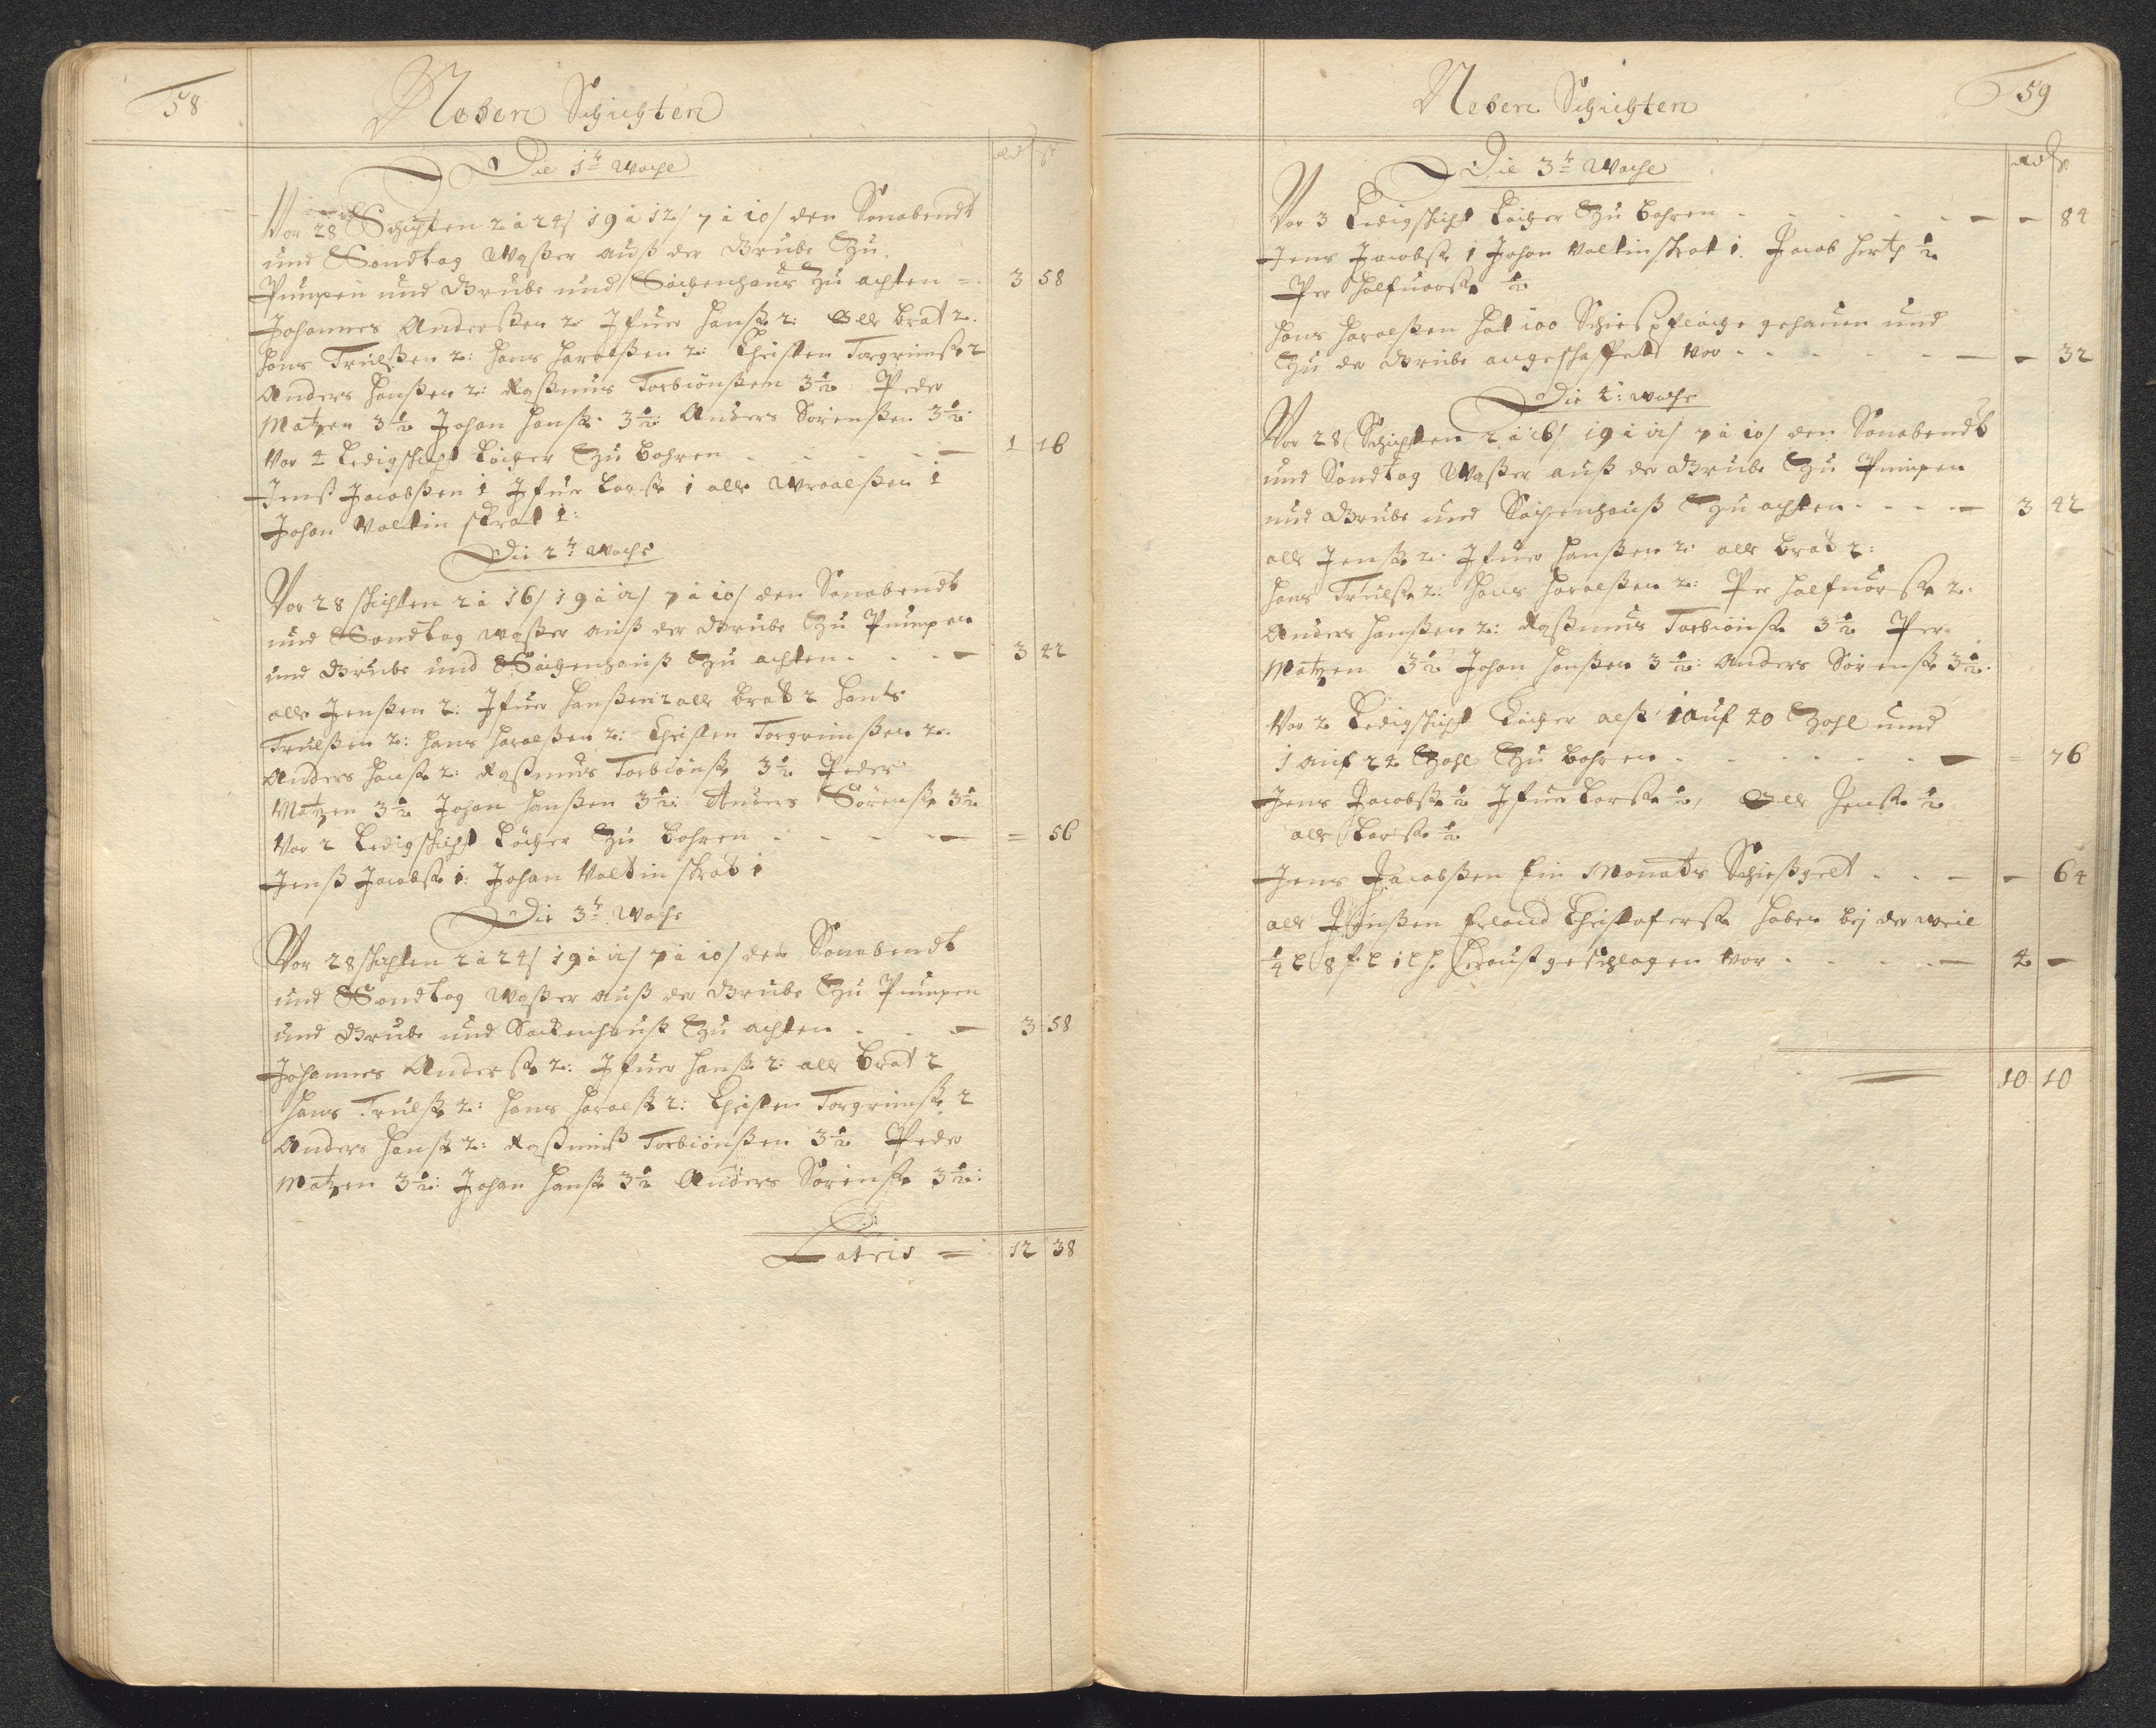 58
Neben Schichten
Die 1te Woche
Rd ß
Vor 28 Schichten 2 à 24/ 19 à 12/ 7 à 10/ den Sonabendt
und Sondtag Waßer auß der Grube Zu
Pumpen und Grube und Sachenhaus Zu achten = 3 58
Johannes Anderßen 2: Ifuer Hanß: 2: Olle Brat 2.
Hans Trulßen 2: Hans Haralßen 2: Christen Torgrimß: 2
Anders Hanßen 2: Raßmus Torbiönßen 3½ Peder
Matzen 3½ Johan Hanß: 3½: Anders Sörenßen 3½:
Vor 4 Ledigschicht Löcher Zu Bohren - - - 1 16
Jenß Jacobßen 1 Ifuer Larß: 1 alle Wroalßen 1
Johan Valtin Skrat 1:
Die 2te Woche
Vor 28 schichten 2 à 16/ 19 à 12/ 7 à 10/ den Sonabendt
und Sondtag waßer auß der Grube Zu Pumpen
und Grube und Sachenhauß Zu achten - - - 3 42
alle Jenßen 2: Ifuer Hanßen 2 alle Brat 2 Hans
Trulßen 2: Hans Haralßen 2: Christen Torgrimßen 2.
Anders Hanß: 2: Raßmus Torbiönß: 3½ Peder
Matzen 3½ Johan Hanßen 3½: Anders Sörenß: 3½
Vor 2 Ledigschicht Löcher Zu Bohren - - - = 56
Jenß Jacobß: 1: Johan Valtin Skrat 1
Die 3te Woche
Vor 28 schichten 2 à 24/ 19 à 12/ 7 à 10/ den Sonabendt
und Sondtag Waßer auß der Grube Zu Pumpen
und Grube und Sackenhauß Zu achten - - - 3 58
Johannes Anderß: 2: Ifuer Hanß: 2: alle Brat 2
Hans Trulß: 2: Hans Haralß: 2: Christen Torgrimß: 2
Anders Hanß: 2: Raßmuß Torbiönßen 3½ Peder
Matzen 3½: Johan Hanß: 3½ Anders Sörenß: 3½:
Latris = 12 38
59
Neben Schichten
Die 3te Woche
Rd ß
Vor 3 Ledigschicht Löcher Zu Bohren - - - - 84
Jens Jacobß: 1 Johan Valtin Skrat 1. Jacob Hertz ½
Per Halfuorß: ½
Hans Haralßen hat 100 Schießpflöche gehauen und
Zu der Grube angeschaffet vor - - - - 32
Die 4: Woche
Vor 28 Schichten 2 à 16/ 19 à 12/ 7 à 10/ den Sonabendt
und Sondtag Waßer auß der Grube Zu Pumpen
und Grube und Sachenhauß Zu achten - - - 3 42
alle Jenß: 2: Ifuer Hanßen 2: alle Brat 2:
Hans Trulß: 2: Hans Haralßen 2: Per Halfuorß: 2:
Anders Hanßen 2: Raßmus Torbiönß: 3½ Per
Matzen 3½ Johan Hanßen 3½: Anders Sörenß: 3½.
Vor 2 Ledigschicht Löcher alß 1 auf 40 Zohl und
1 auf 24 Zohl Zu Bohren - - - = 76
Jens Jacobß: ½ Ifuer Larß: ½, Olle Jenß: ½
alle Larß: ½
Jens Jacobßen Ein Monats Schießgelt - - - - 64
alle Jenßen Erland Christoferß: haben bej der weil
herauß geschlagen vor - - - 4 -
10 10